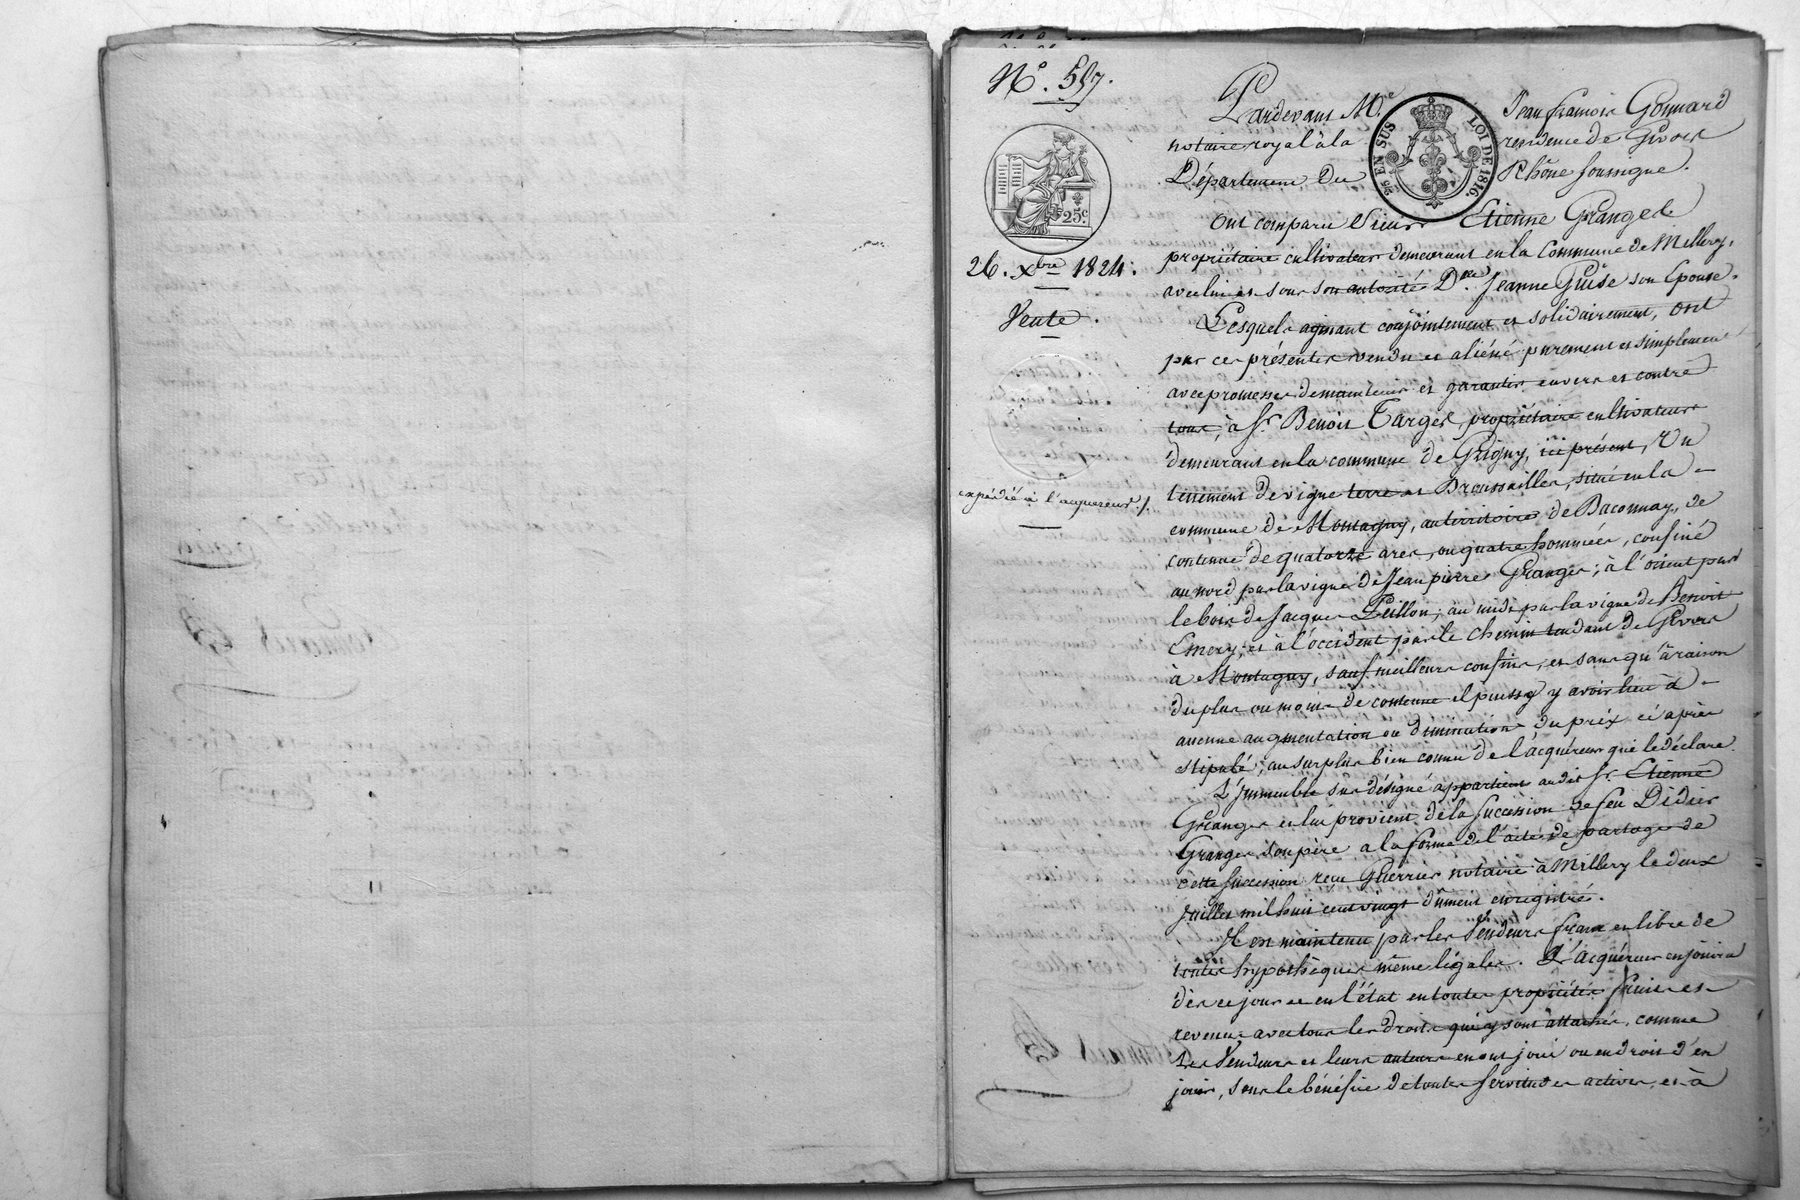 N.° 557.
25.c
26. Xbre 1824.
Vente.
expédié à l'acquereur /.
EN SUS LOI DE 1816.
Pardevant M.e Jean françois Gonnard
notaire royal à la résidence de Givors
Département du Rhône soussigné.
Ont comparu Sieur Etienne Granger
propriétaire cultivateur demeurant en la Commune de Millery,
avec lui et sous son autorité D.me Jeanne Guise son Epouse.
Lesquels agissant conjointement et solidairement, ont
par ces présentes vendu et aliéné purement et simplement
avec promesse de maintenir et garantir envers et contre
tous, à S.r Benoit Targes, propriétaire cultivateur
demeurant en la commune de Grigny, ici présent, Un
tènement de vigne terre et Broussailles, situé en la
commune de Montagny, au territoire de Baconnay, de
contenue de quatorze ares, ou quatre hommées, confiné
au nord par la vigne de Jean pierre Granger; à l'orient par
le bois de Jacques Peillon; au midi par la vigne de Benoit
Emery; et à l'occident par le chemin tendant de Givors
à Montagny, sauf meilleurs confins, et sans qu'à raison
du plus ou moins de contenue il puisse y avoir lieu à
aucune augmentation ou diminution du prix ci après
stipulé; au surplus bien connu de l'acquéreur qui le déclare.
L'Immeuble sus désigné appartient audit S.r Etienne
Granger et lui provient de la succession de feu Didier
Granger, son père, à la forme de l'acte de partage de
cette succession reçu Guerrier notaire à Millery le deux
juillet mil huit cent vingt dûment enregistré.
Il est maintenu par les Vendeurs franc et libre de
toutes hypothèques même légales. L'acquéreur en jouira
dès ce jour et en l'état en toutes propriétés fruits et
revenus avec tous les droits qui y sont attachés, comme
les Vendeurs et leurs auteurs en ont joui ou eu droit d'en
jouir, sous le bénéfice de toutes servitudes actives, et à